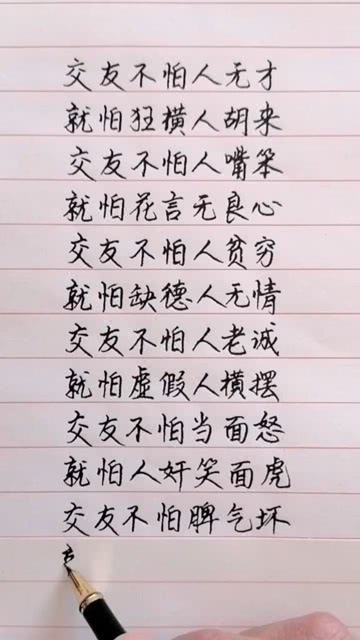 交友不怕人无才
就怕狂横人胡来
交友不怕人嘴笨
就怕花言无良心
交友不怕人贫穷
就怕缺德人无情
交友不怕人老诚
就怕虚假人横摆
交友不怕当面怒
就怕人奸笑面虎
交友不怕脾气坏